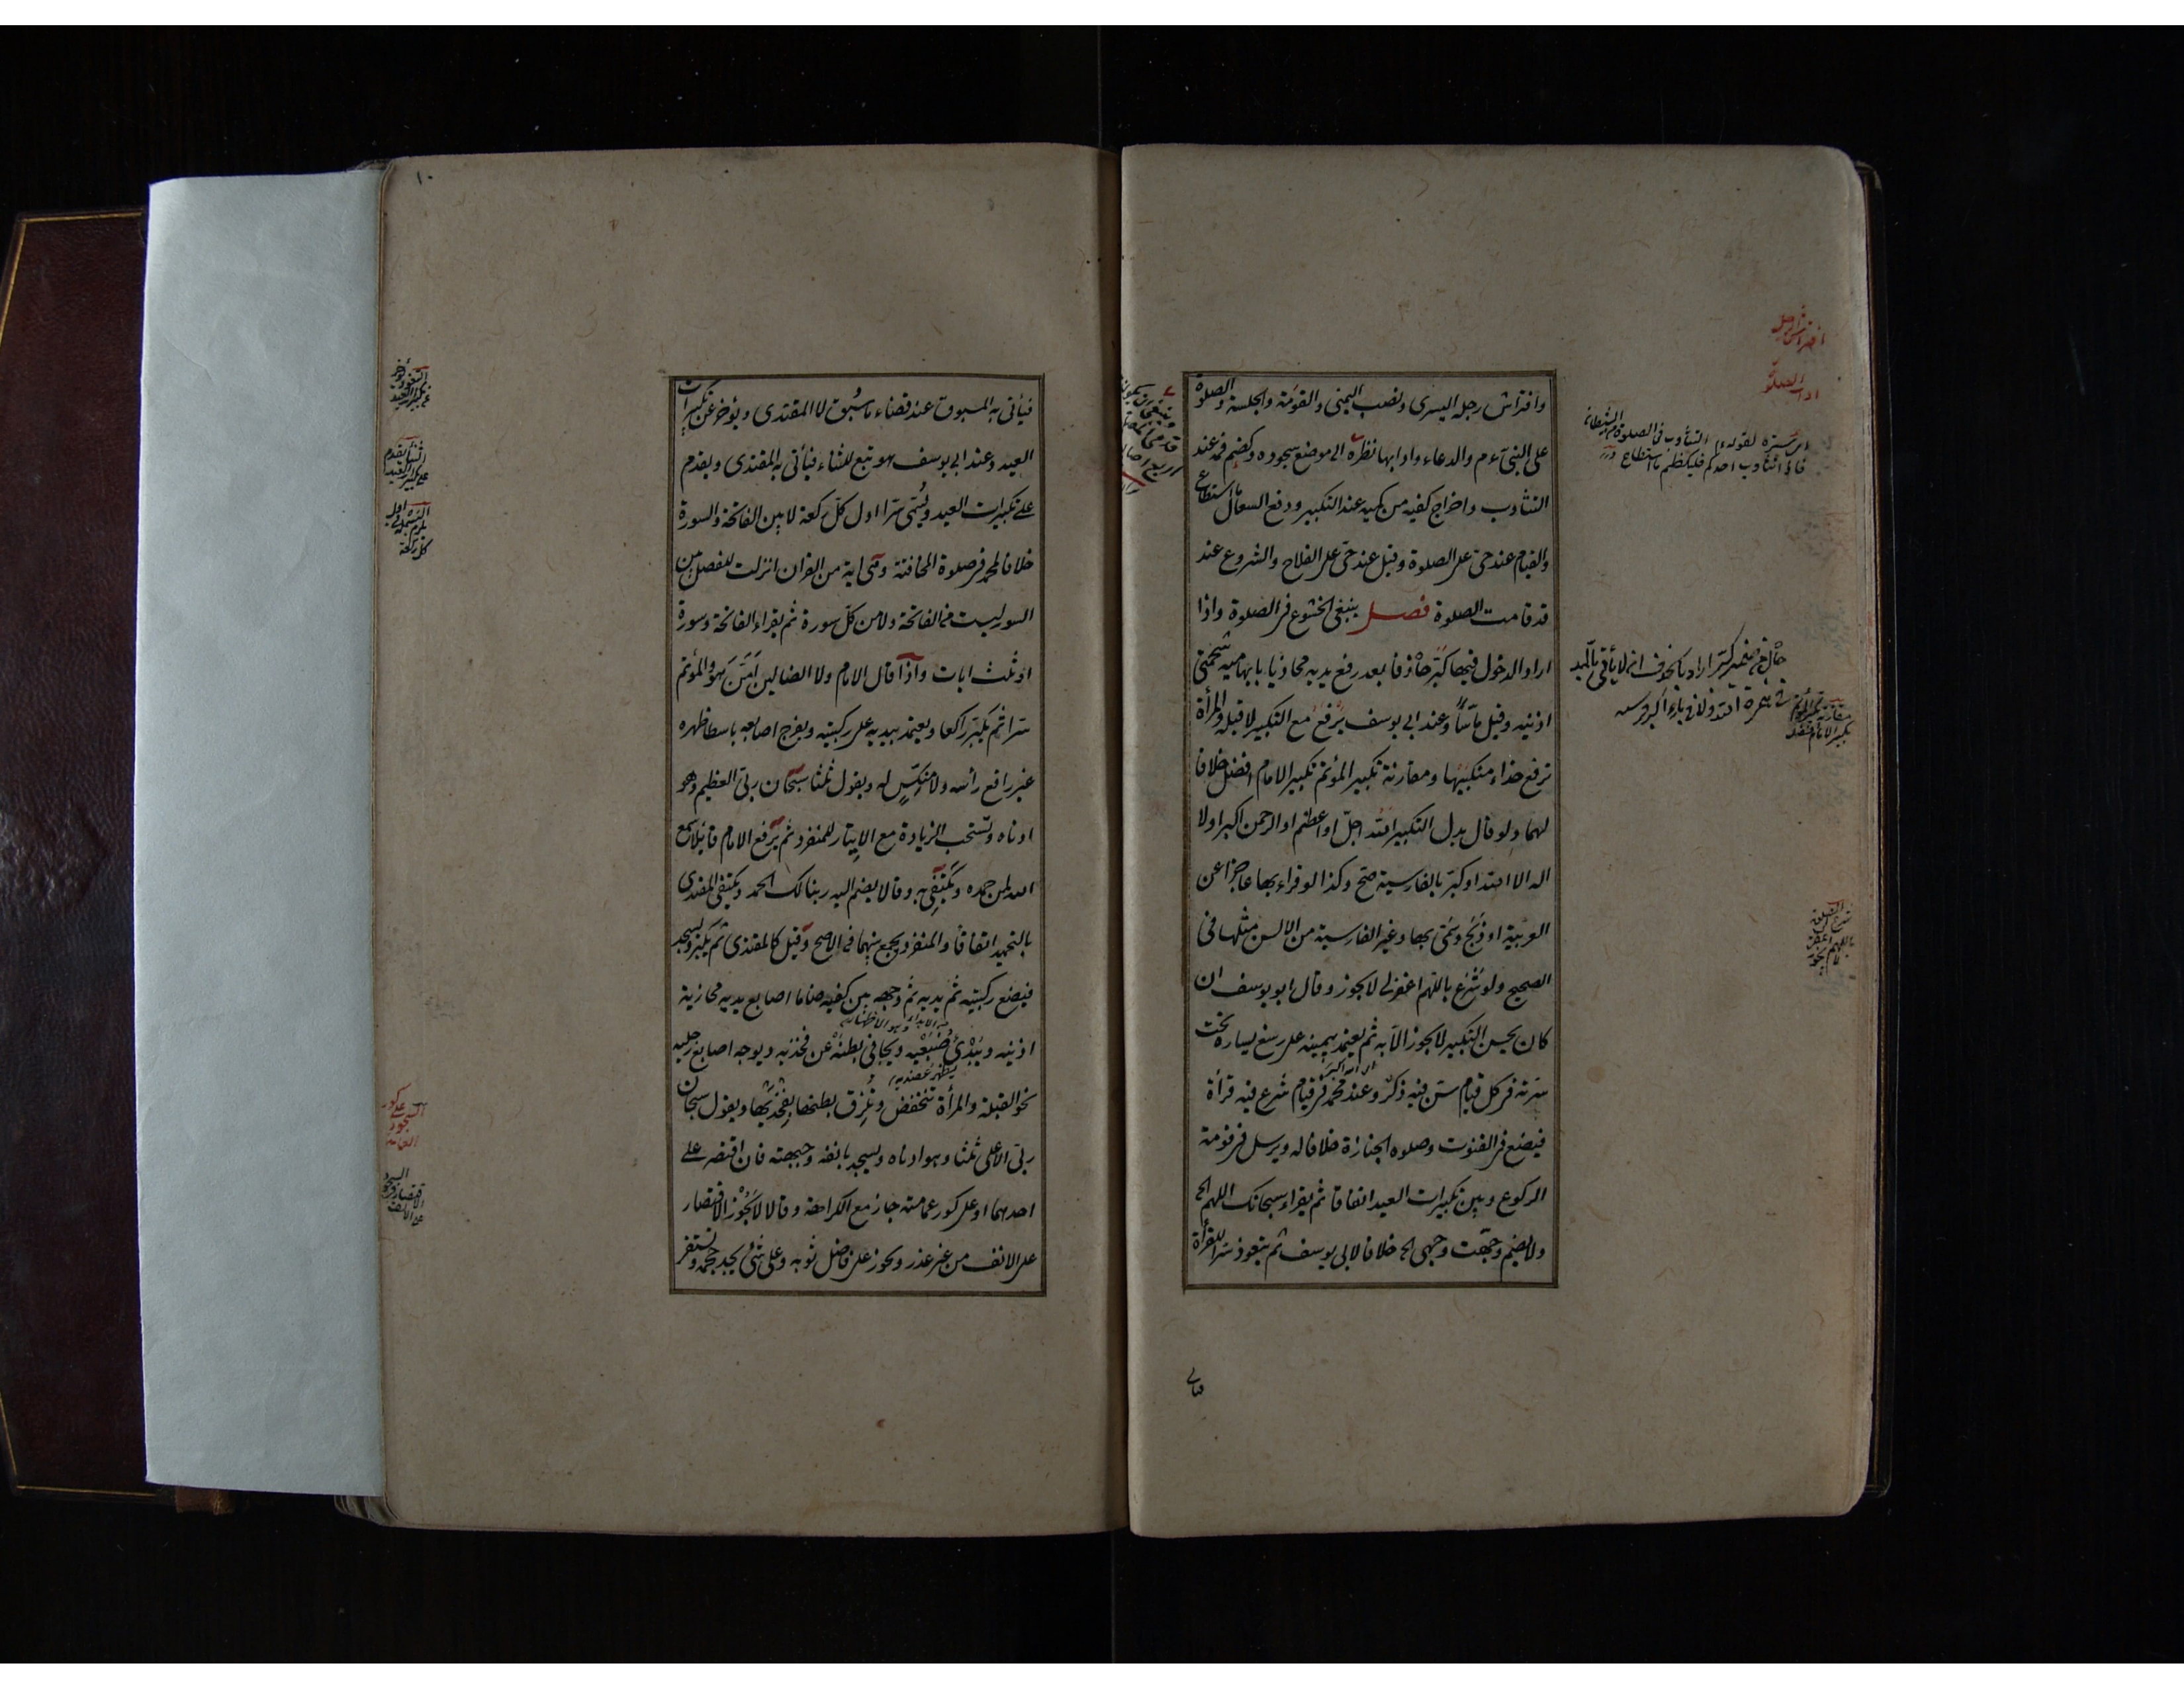 وافتراش رجله اليسرى ونصب اليمنى والقومة والجلسة والصلوة
على النبي ءم والدعاء وادابها نظره الى موضع سجوده وكضم فمه عند
التثاوب واخراج كفيه من كميه عند التكبير ودفع السعال ما استطاع
والقيام عند حى على الصلوة وقيل عند حى على الفلاح والشروع عند
قد قامت الصلوة فصل ينبغى الخشوع فى الصلوة واذا
اراد الدخول فيها كبر حاذفا بعد رفع يديه محاذيا بابهاميه شحمتى
اذنيه وقيل ماسا وعند ابى يوسف يرفع مع التكبير لا قبله والمرأة
ترفع حذاء منكبيها ومقارنة تكبير المؤتم تكبير الامام افضل خلافا
لهما ولو قال بدل التكبير الله اجل او اعظم او الرحمن اكبر او لا
اله الا الله او كبر بالفارسية صح وكذا لو قراء بها عاجزا عن
العربية او ذبح وسمى بها وغير الفارسية من الالسن مثلها فى
الصحيح ولو شرع باللهم اغفر لى لا يجوز وقال ابو يوسف ان
كان يحسن التكبير لا يجوز الا به ثم يعتمد بيمينه على رسغ يساره تحت
سرته فى كل قيام سن فيه ذكر وعند محمد فى قيام شرع فيه قرأة
فيضع فى القنوت وصلوه الجنازة خلافا له ويرسل فى قومة
الركوع وبين تكبيرات العيد اتفاقا ثم يقراء سبحانك اللهم الخ
ولا يضم وجهت وجهى الخ خلافا لابى يوسف ثم يتعوذ سرا للقرأة
افتراش الرجل
اداب الصلوة
التثاوب فى الصلوة من الشيطان
فاذا تثاوب احدكم فليكظم ما استطاع درر
فياتى
١٠
فيأتى به المسبوق عند قضاء ما سبق لا المقتدى ويؤخر عن تكبيرات
العيد وعند ابى يوسف هو تبع للثناء فيأتى به المقتدى ويقدم
على تكبيرات العيد ويسمى سرا اول كل ركعة لا بين الفاتحة والسورة
خلافا لمحمد فى صلوة المخافتة وهى اية من القران انزلت للفصل بين
السور ليست من الفاتحة ولا من كل سورة ثم يقراء الفاتحة وسورة
او ثلث ايات واذا قال الامام ولا الضالين امن هو والمؤتم
سرا ثم يكبر راكعا ويعتمد بيديه على ركبتيه ويفرج اصابعه باسطا ظهره
غير رافع رأسه ولا منكس له ويقول ثلثا سبحان ربى العظيم وهو
ادناه وتستحب الزيادة مع الايتار للمنفرد ثم يرفع الامام قائلا سمع
الله لمن حمده ويكتفى به وقالا يضم اليه ربنا لك الحمد ويكتفى المقتدى
بالتحميد اتفاقا والمنفرد يجمع بينهما فى الاصح وقيل كالمقتدى ثم يكبر ويسجد
فيضع ركبتيه ثم يديه ثم وجهه بين كفيه ضاما اصابع يديه محازية
اذنيه ويبدى ضبعيه ويجافى بطنه عن فخذيه ويوجه اصابع رجليه
نحو القبلة والمرأة تنخفض وتلزق بطنها بفخذيها ويقول سبحان
ربى الاعلى ثلثا وهو ادناه ويسجد بانفه وجبهته فان اقتصر على
احدهما او على كور عمامته جاز مع الكراهة وقالا لا يجوز الاقتصار
على الانف من غير عذر ويجوز على فاضل ثوبه وعلى شئ يجد حجمه وتستقر